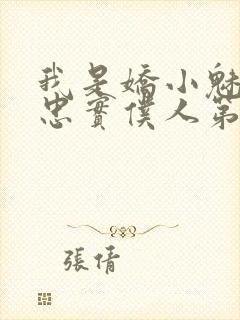 我是嬌小魅
忠實僕人第
張倩